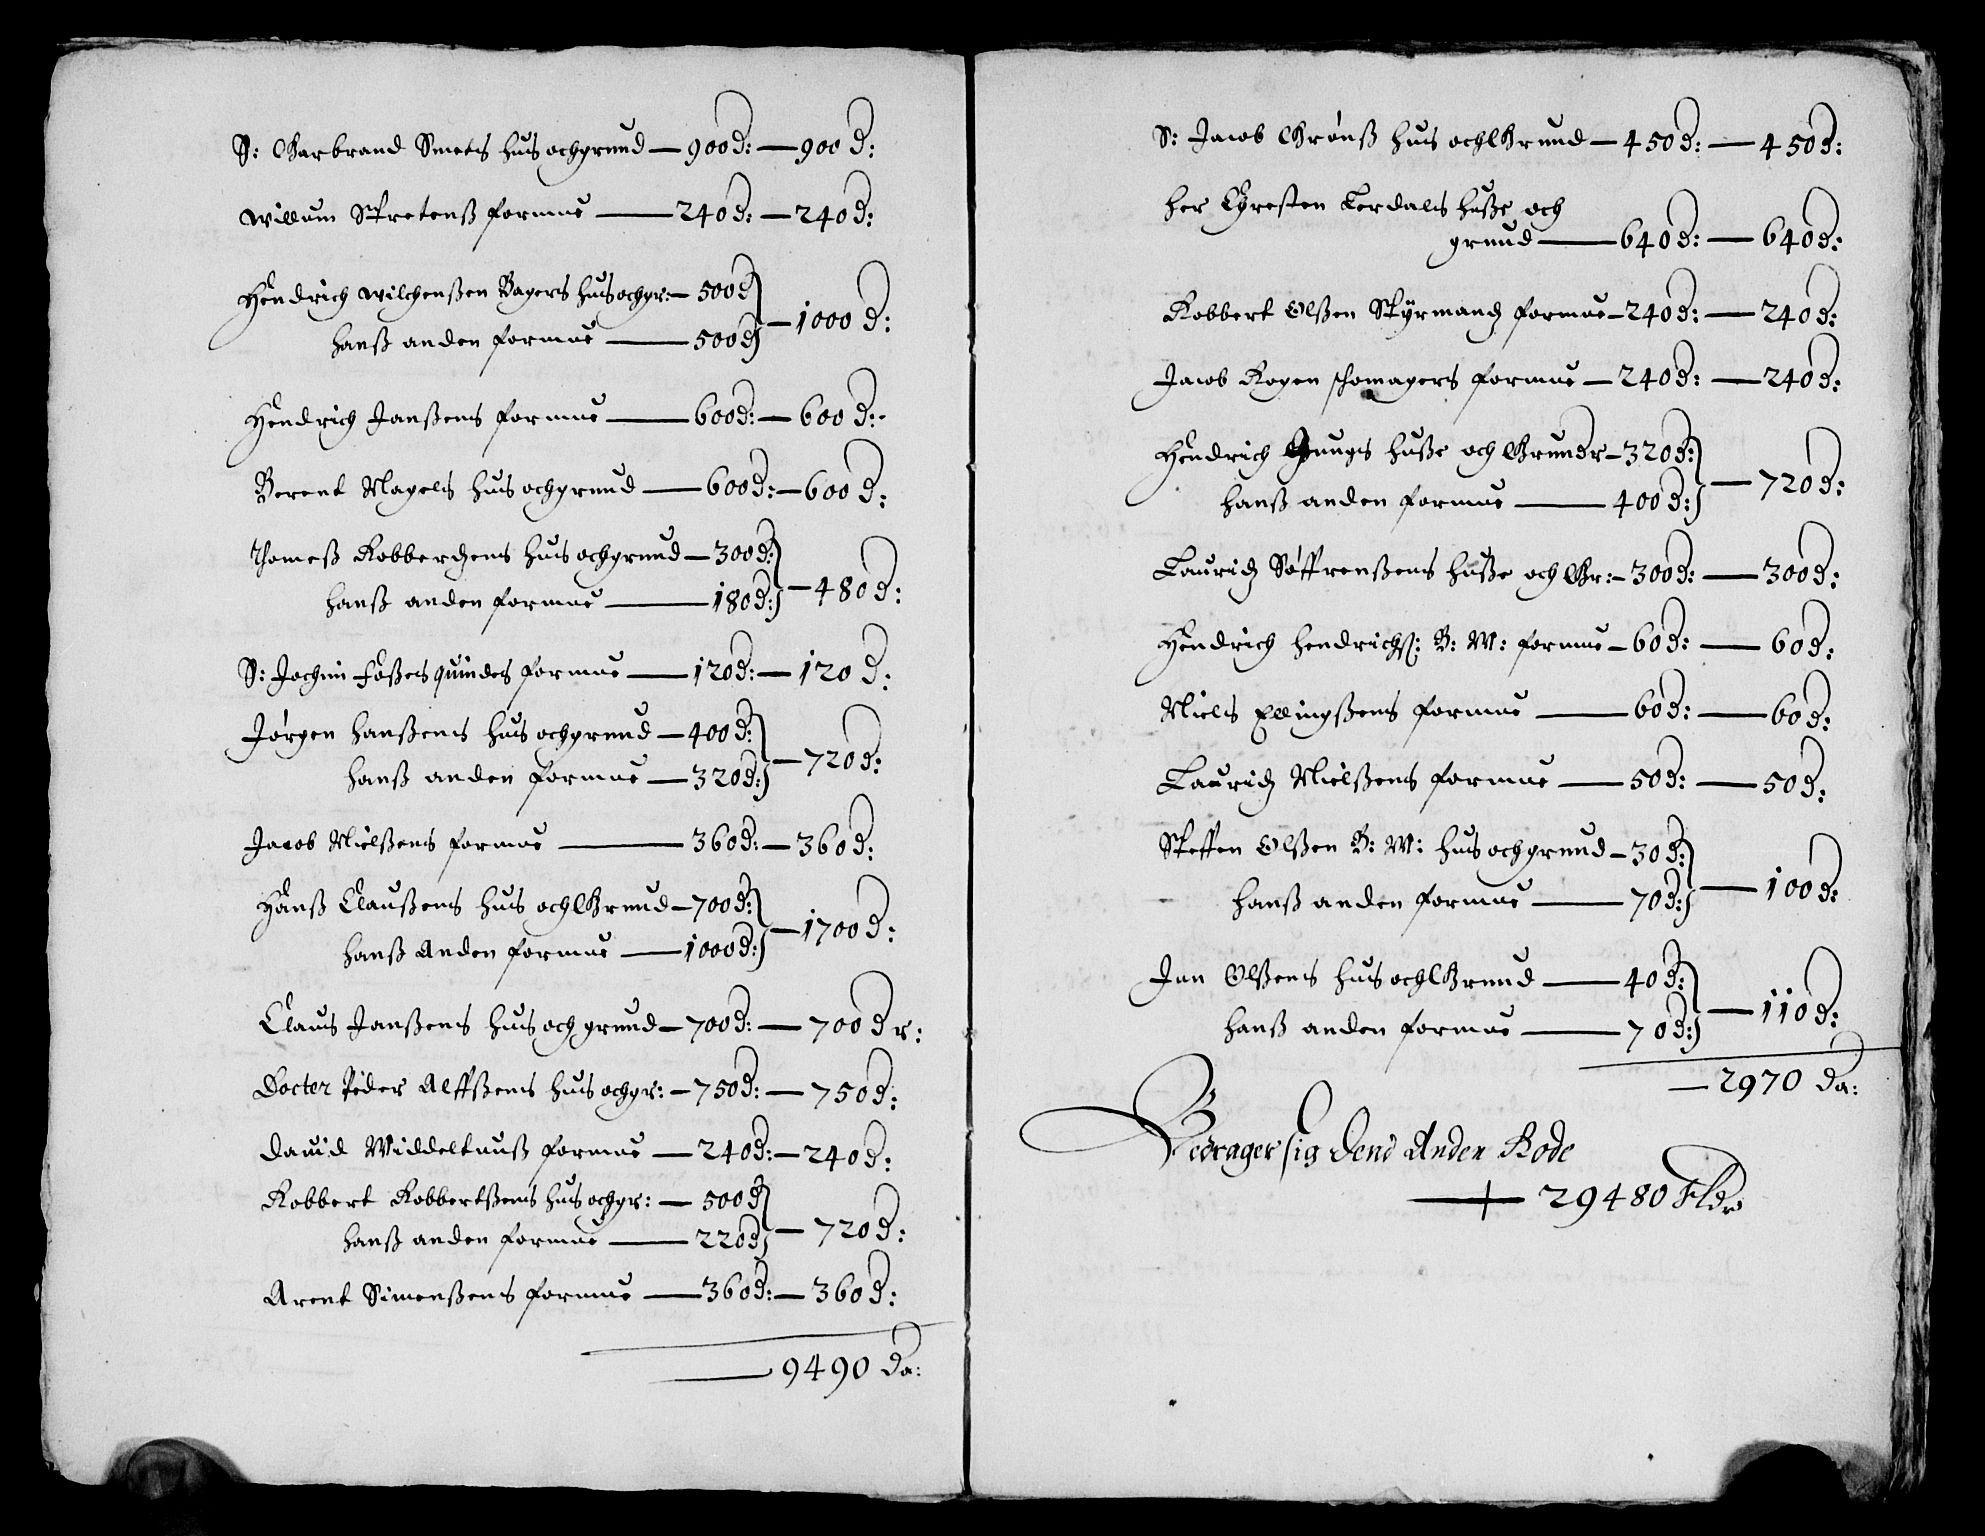 S: Garbrand Smets hus och grund — 900 d: — 900 d:
Willum Stretens formue — 240 d: — 240 d:
Hendrich Wilchensen Bagers hus och gr: — 500 d
hans anden formue — 500 d — 1000 d:
Hendrich Jansens formue — 600 d: — 600 d:
Berent Magels hus och grund — 600 d: — 600 d:
Thomes Robbertzens hus och grund — 300 d:
hans anden formue — 180 d: — 480 d:
S: Jochim quindes formue — 120 d: — 120 d:
Jørgen Hansens hus och grund — 400 d:
hans anden formue — 320 d: — 720 d:
Jacob Nielsens formue — 360 d: — 360 d:
Hans Clausens hus och Grund — 700 d:
hans Anden formue — 1000 d: — 1700 d:
Claus Jansens hus och grund — 700 d: — 700 dr:
Docter Peder Alffsens hus och gr: — 750 d: — 750 d:
Dauid formue — 240 d: — 240 d:
Robbert Robbertsens hus och gr: — 500 d
hans anden formue — 220 d — 720 d:
Arent Simensens formue — 360 d: — 360 d:
— 9490 da:
S: Jacob Grøns hus och Grund — 450 d: — 450 d:
her Chresten Lerdals huse och
grund — 640 d: — 640 d:
Robbert Olsen Styrmandz formue — 240 d: — 240 d:
Jacob Kogen schomagers formue — 240 d: — 240 d:
Hendrich huse och Grundr — 320 d:
hans anden formue — 400 d: — 720 d:
Lauridz Søffrensens huse och Gr: — 300 d: — 300 d:
Hendrich Hendrichs: B: M: formue — 60 d: — 60 d:
Niels Ellingsens formue — 60 d: — 60 d:
Lauridz Nielsens formue — 50 d: — 50 d:
Steffen Olsen B: M: hus och grund — 30 d:
hans anden formue — 70 d: — 100 d:
Jan Olsens hus och Grund — 40 d:
hans anden formue — 70 d: — 110 d:
— 2970 da:
Bedrager sig Dend Anden Rode
— 29480 Rldr